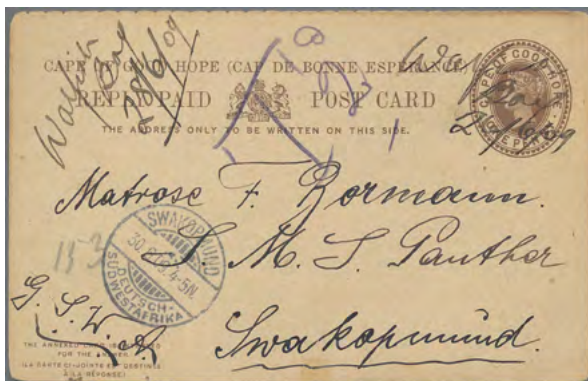 CAPE OF GOOD HOPE (CAP DE BONNE ESPERANCE)
REPLY PAID POST CARD
THE ADDRESS ONLY TO BE WRITTEN ON THIS SIDE.
CAPE OF GOOD HOPE
ONE PENNY
Walfish
Bay
28/6/09
Matrose F. Bormann.
S. M. S. Panther
Swakopmund.
G. S. W. A.
SWAKOPMUND
DEUTSCH-
SÜDWESTAFRIKA
THE ANNEXED CARD IS INTENDED
FOR THE ANSWER.
(LA CARTE CI-JOINTE EST DESTINÉE
À LA RÉPONSE)